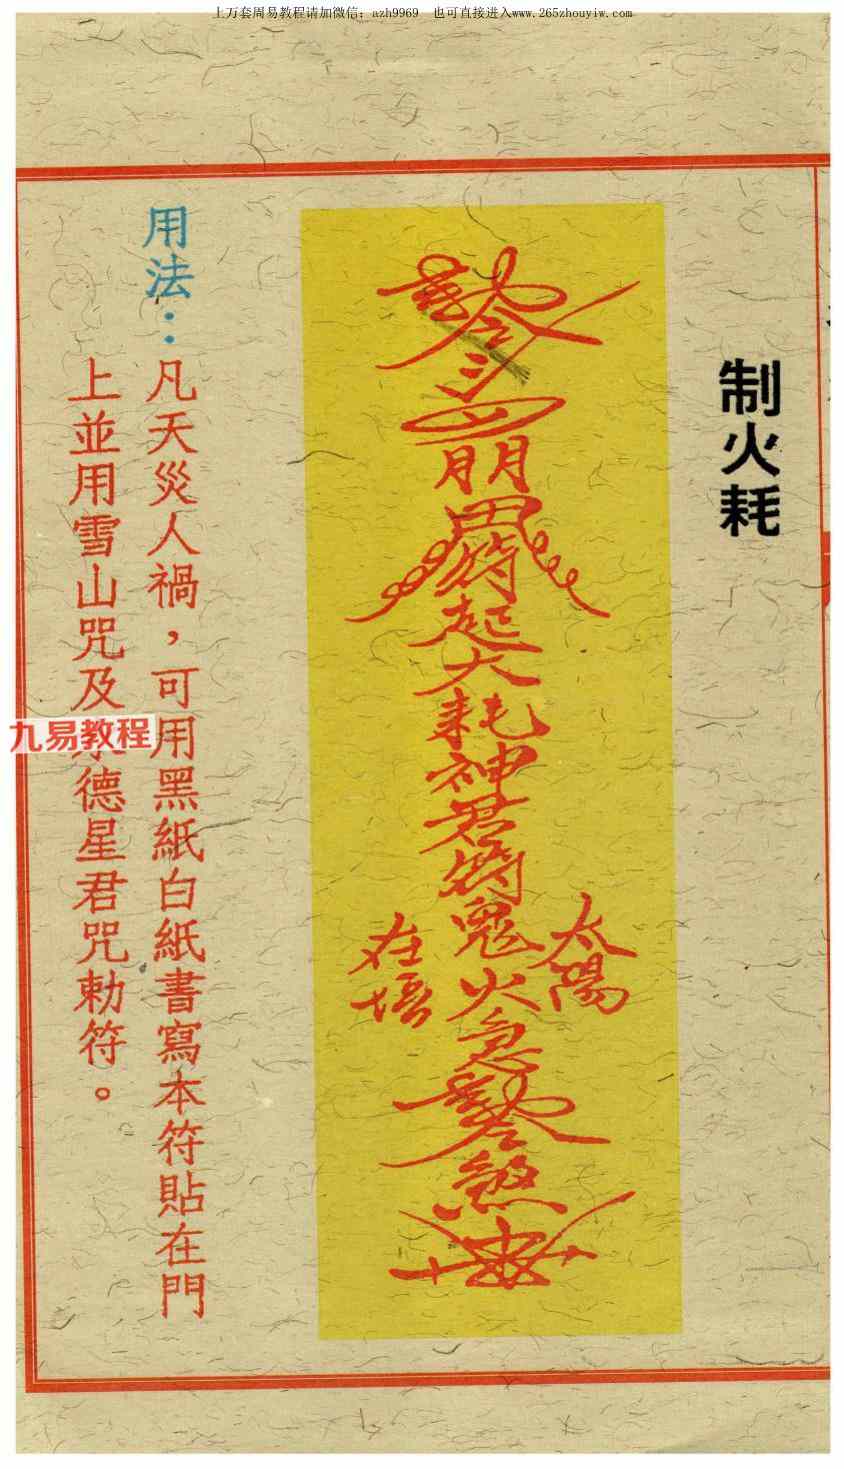 上万套周易教程请加微信：azh9969　也可直接进入www.265zhouyiw.com
制火耗
朋
符
起
大
耗
神
君
符
鬼
火
急
煞
太陽
在
用法：凡天災人禍，可用黑紙白紙書寫本符貼在門
上並用雪山咒及德星君咒勅符。
九易教程